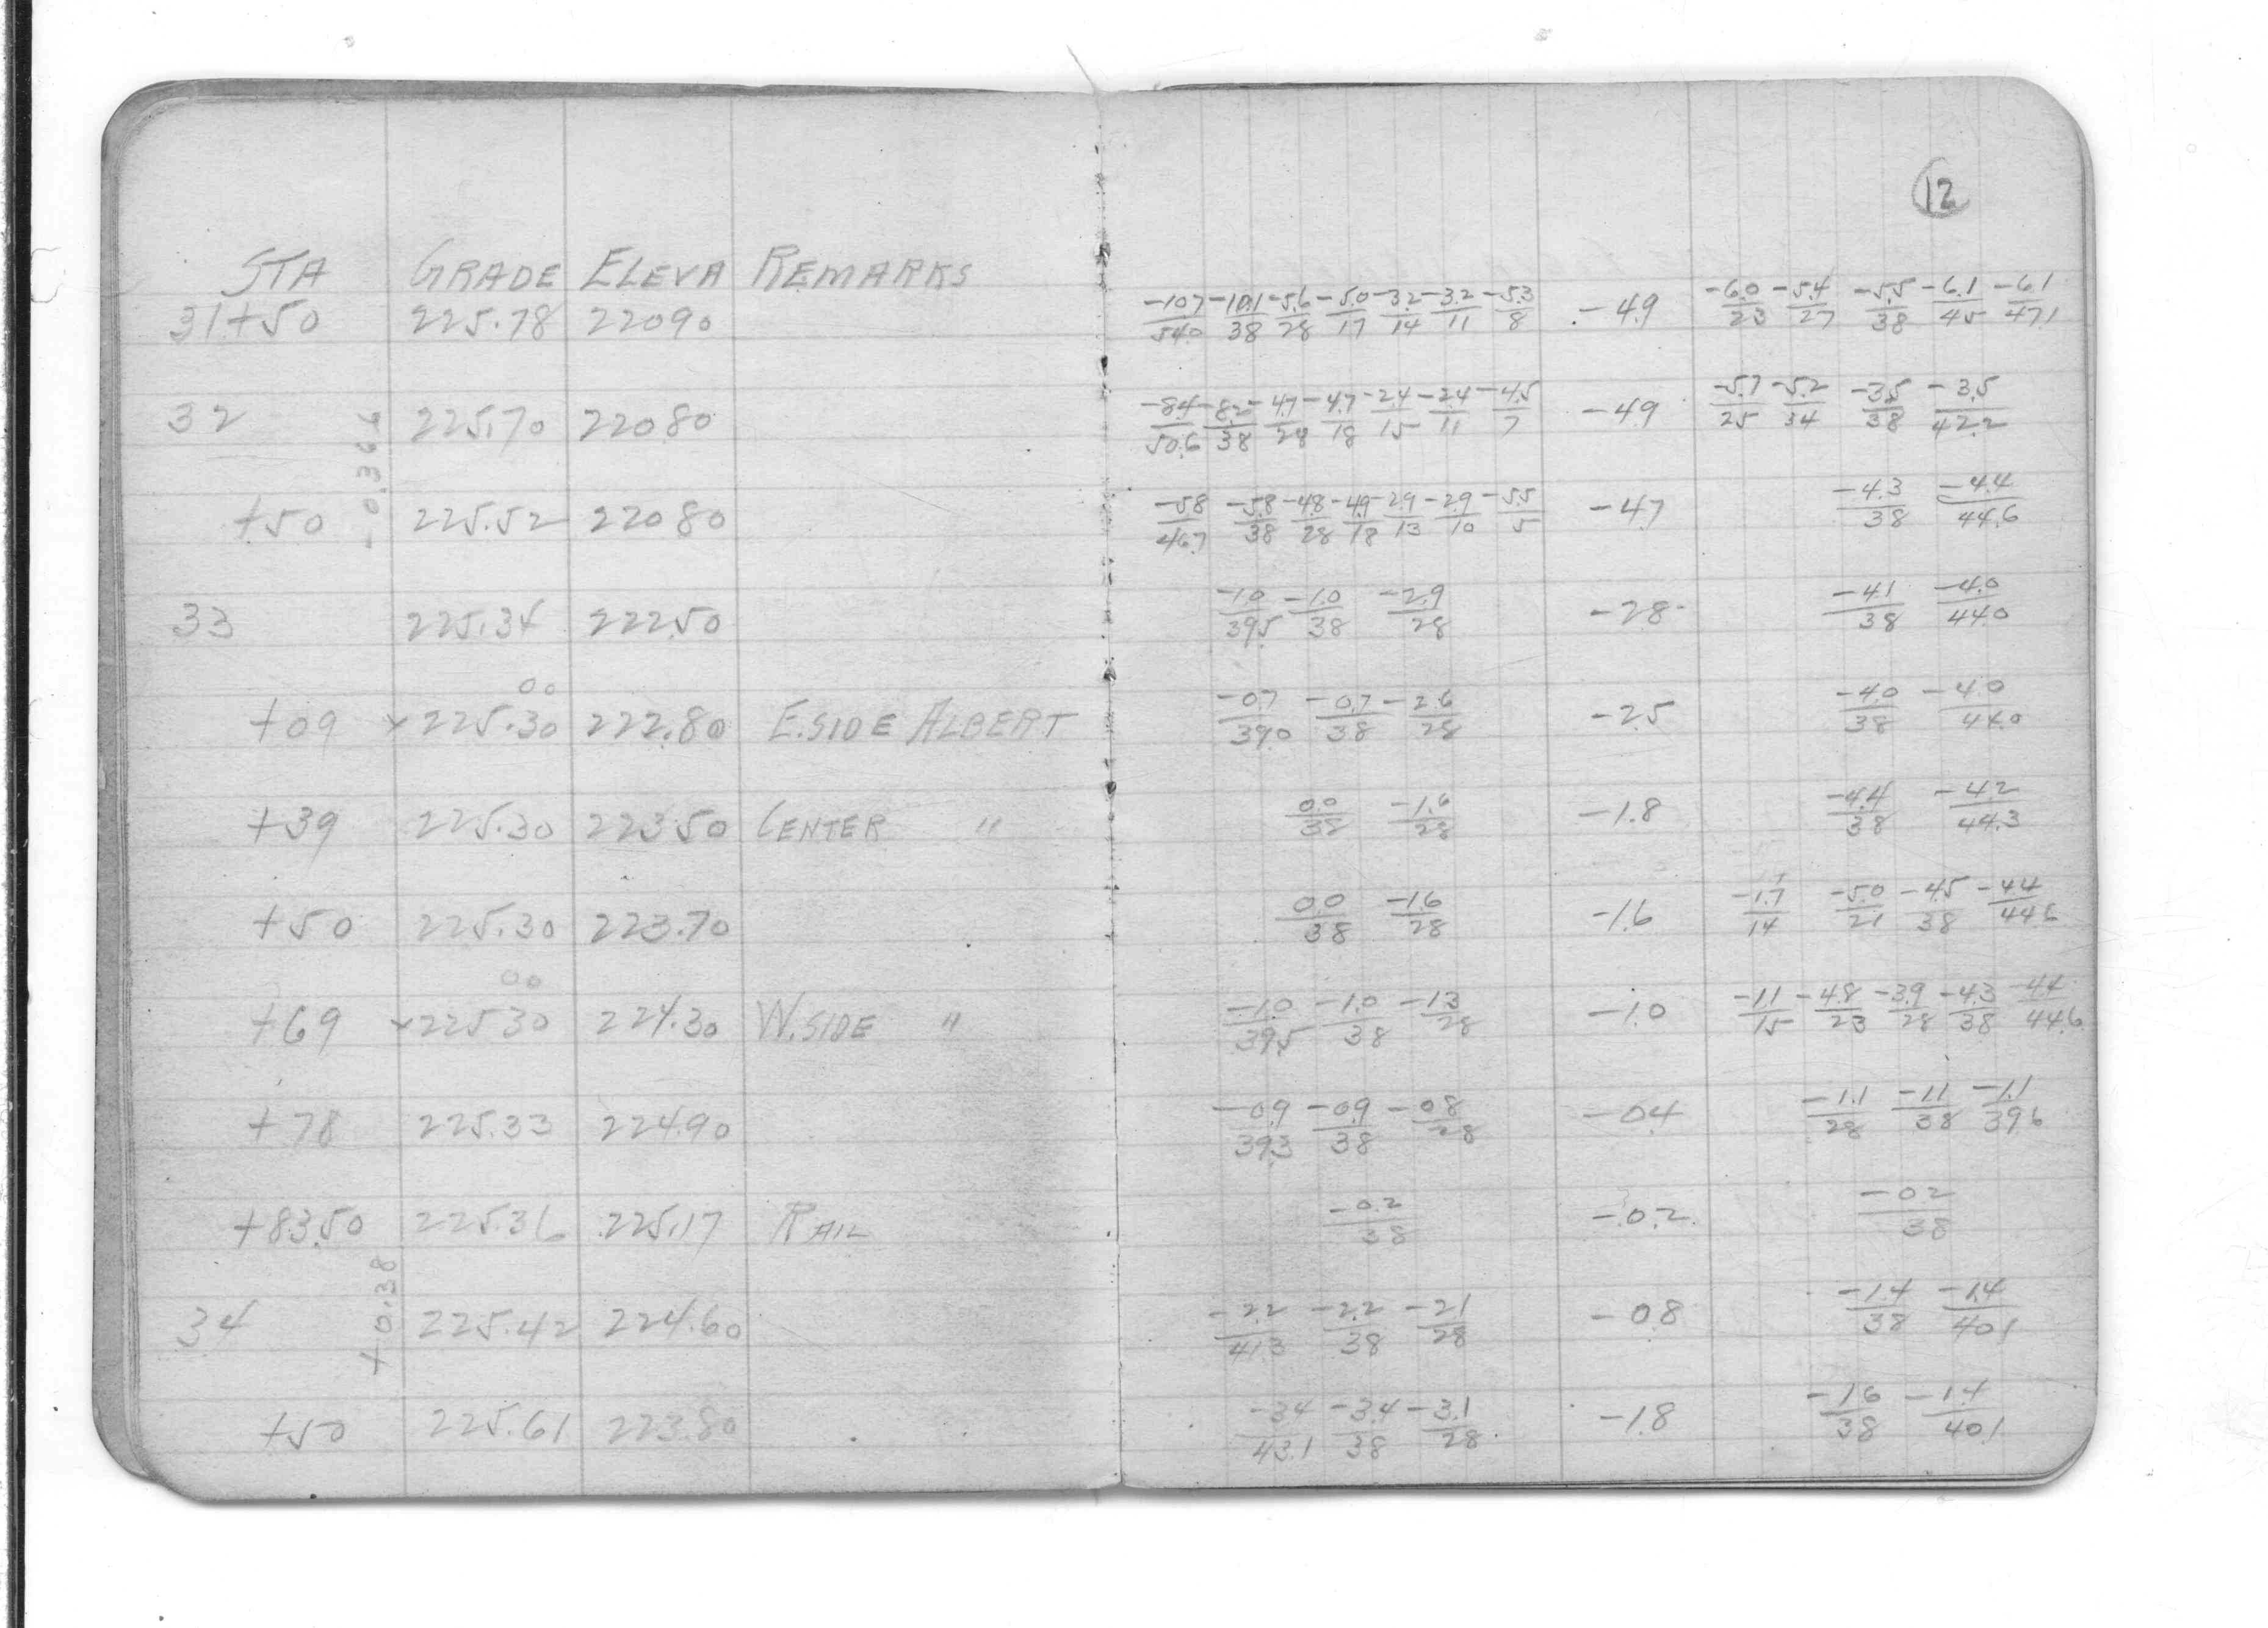 12
STA GRADE ELEVA REMARKS
31+50 225.78 220.90 -10.7/54.0 -10.1/38 -5.6/28 -5.0/17 -3.2/14 -3.2/11 -5.3/8 -4.9 -6.0/23 -5.4/27 -5.5/38 -6.1/45 -6.1/47.1
32 225.70 220.80 -8.4/50.6 -8.2/38 -4.7/28 -4.7/18 -2.4/15 -2.4/11 -4.5/7 -4.9 -5.7/25 -5.2/34 -3.5/38 -3.5/42.2
-0.366
+50 225.52 220.80 -5.8/46.7 -5.8/38 -4.8/28 -4.9/18 -2.9/13 -2.9/10 -5.5/5 -4.7 -4.3/38 -4.4/44.6
33 225.34 222.50 -1.0/39.5 -1.0/38 -2.9/28 -2.8 -4.1/38 -4.0/44.0
00
+09 x225.30 222.80 E.SIDE ALBERT -0.7/39.0 -0.7/38 -2.6/28 -2.5 -4.0/38 -4.0/44.0
+39 225.30 223.50 CENTER " 0.0/38 -1.6/28 -1.8 -4.4/38 -4.2/44.3
+50 225.30 223.70 0.0/38 -1.6/28 -1.6 -1.7/14 -5.0/21 -4.5/38 -4.4/44.6
00
+69 x225.30 224.30 W.SIDE " -1.0/39.5 -1.0/38 -1.3/28 -1.0 -1.1/15 -4.8/23 -3.9/28 -4.3/38 -4.4/44.6
+78 225.33 224.90 -0.9/39.3 -0.9/38 -0.8/28 -0.4 -1.1/28 -1.1/38 -1.1/39.6
+83.50 225.36 225.17 RAIL -0.2/38 -0.2 -0.2/38
+0.38
34 225.42 224.60 -2.2/41.3 -2.2/38 -2.1/28 -0.8 -1.4/38 -1.4/40.1
+50 225.61 223.80 -3.4/43.1 -3.4/38 -3.1/28 -1.8 -1.6/38 -1.4/40.1